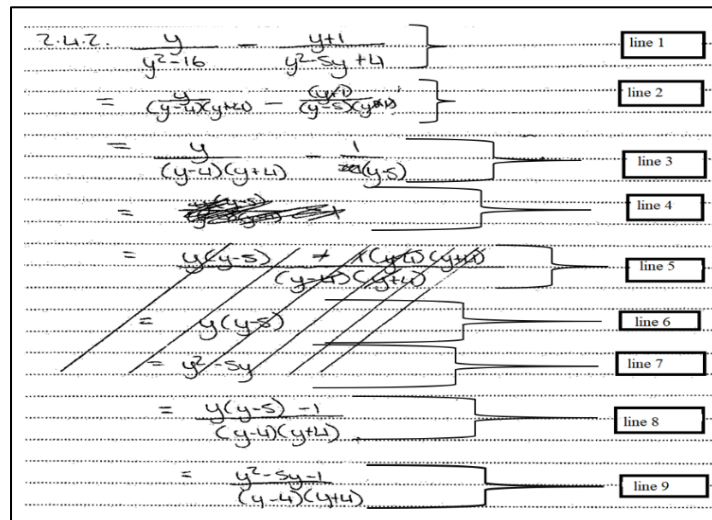 2.4.2. y/(y²-16) - (y+1)/(y²-5y+4) line 1
= y/((y-4)(y+4)) - (y+1)/((y-5)(y+1)) line 2
= y/((y-4)(y+4)) - 1/(y-5) line 3
= line 4
= (y(y-5) + 1(y-4)(y+4))/((y-4)(y+4)) line 5
= y(y-5) line 6
= y²-5y line 7
= (y(y-5) -1)/((y-4)(y+4)) line 8
= (y²-5y-1)/((y-4)(y+4)) line 9